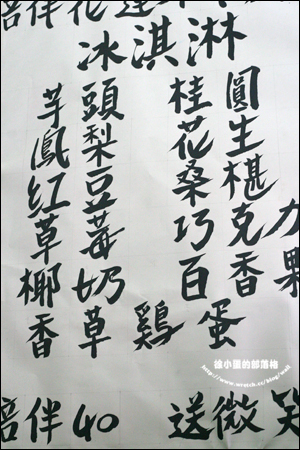 陪伴花蓮
冰淇淋
芋頭 桂圓
鳳梨 花生
紅豆 桑椹
草莓 巧克力
椰奶 百香果
香草 鷄蛋
陪伴40 送微笑
徐小園的部落格
http://www.wretch.cc/blog/wall